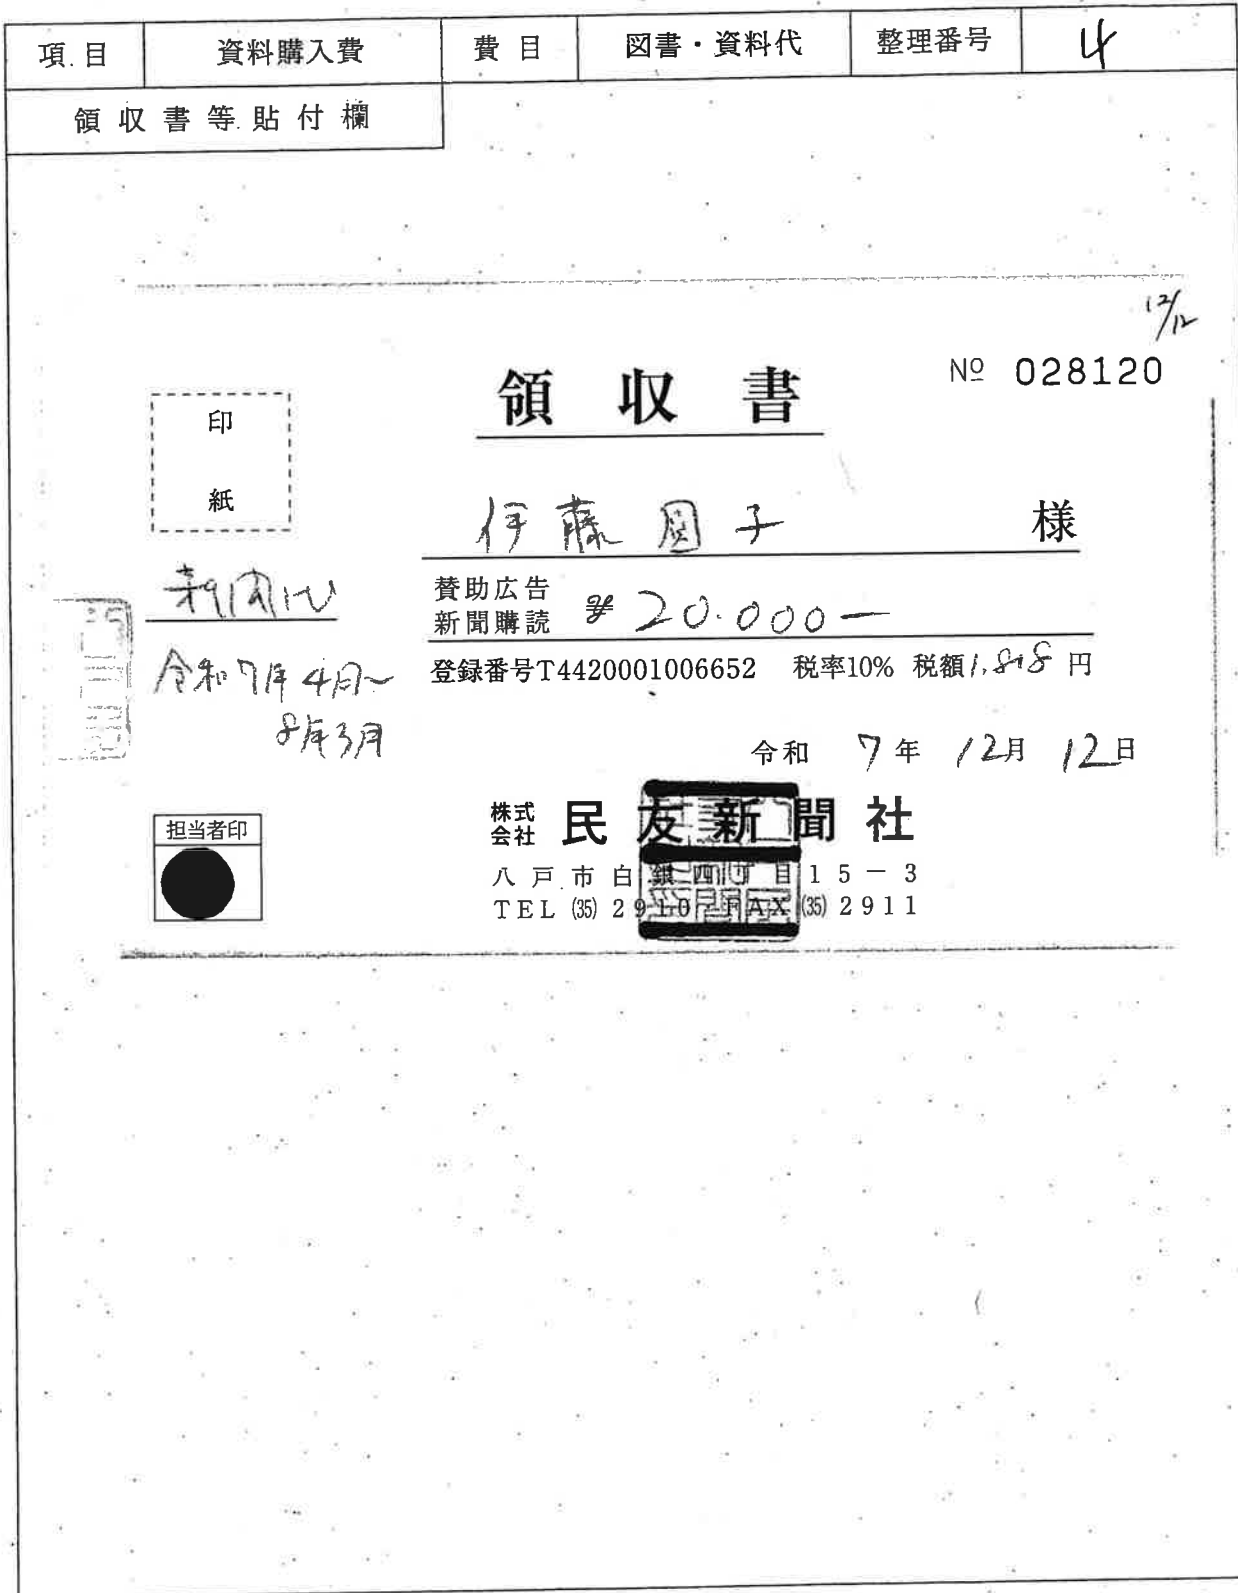 項目 資料購入費 費目 図書・資料代 整理番号 4
領収書等貼付欄
12/12
領収書 No 028120
印
紙
伊藤圓子 様
新聞代
賛助広告
新聞購読 ¥20.000-
登録番号T4420001006652 税率10% 税額1,818円
令和7年4月~
8年3月
令和 7年 12月 12日
担当者印
株式
会社 民友新聞社
八戸市白銀四丁目15-3
TEL(35)2910 FAX(35)2911